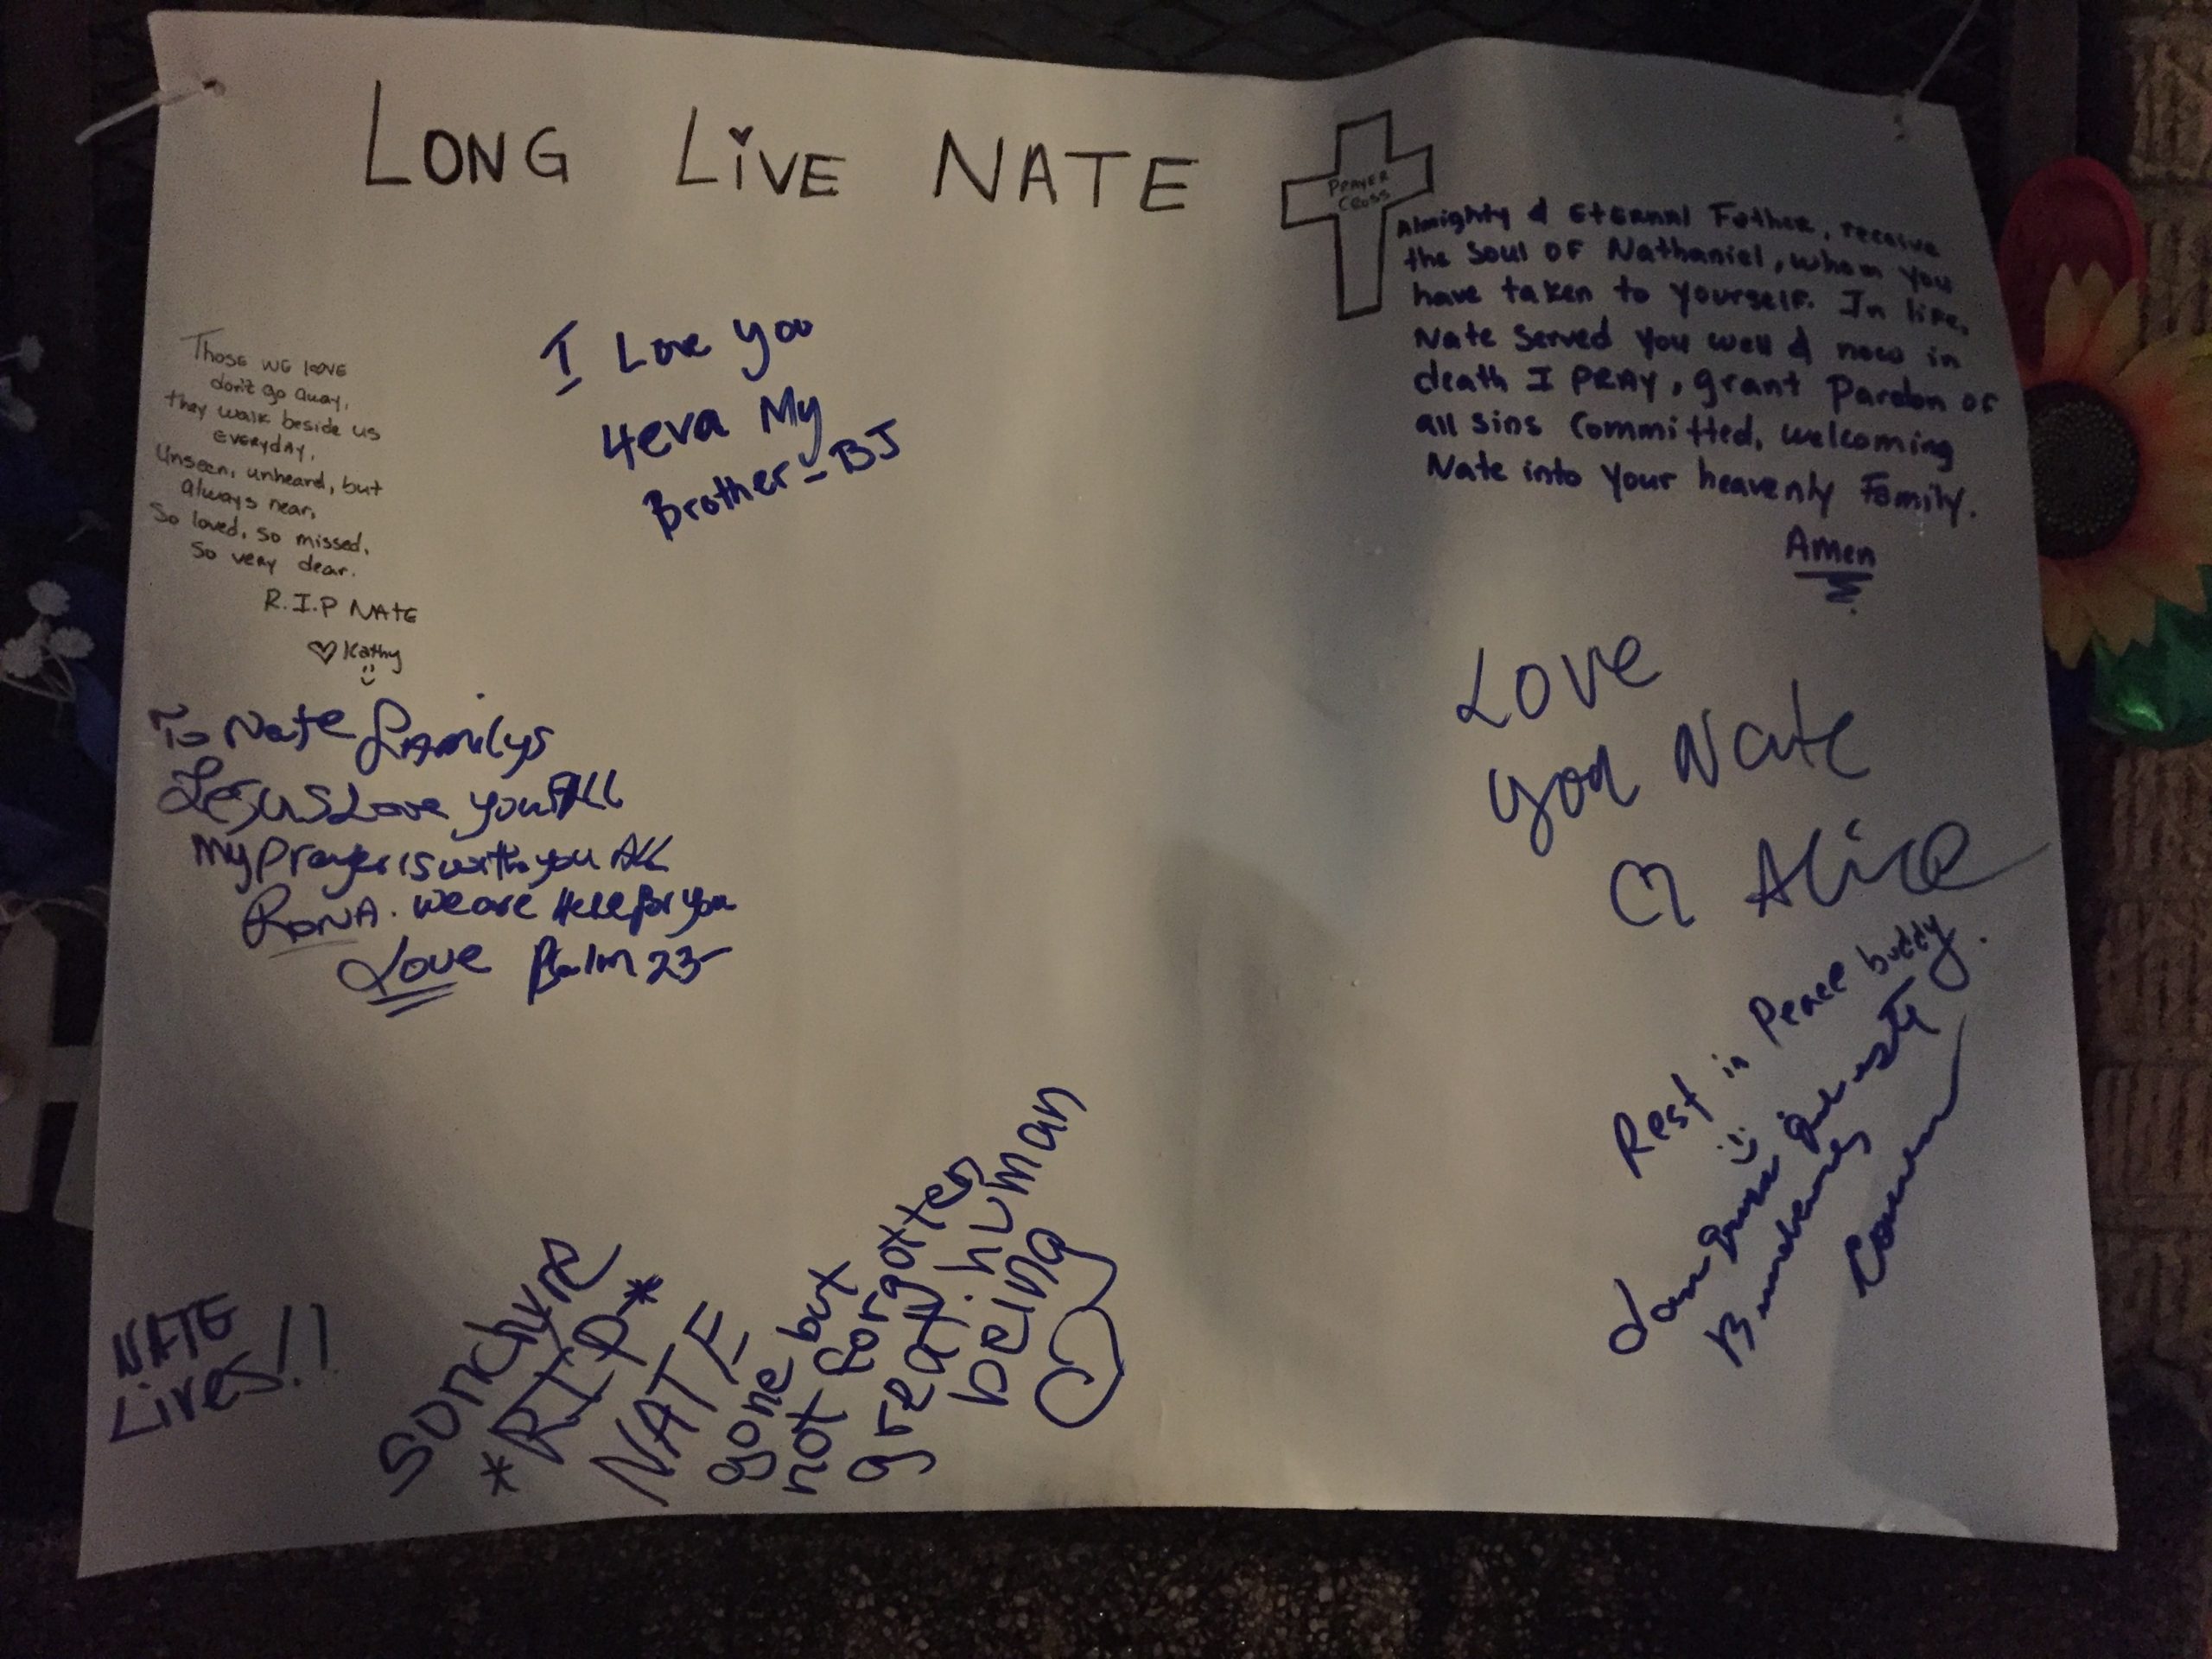 LONG LiVE NATE
PRAYER
CROSS
Almighty & Eternal Father, receive
the Soul of Nathaniel, whom you
have taken to yourself. In life,
Nate Served you well & now in
death I PRAY, grant Pardon of
all sins Committed, welcoming
Nate into your heavenly Family.
Amen
Those we love
don't go away,
they walk beside us
everyday,
Unseen, unheard, but
always near,
So loved, so missed,
So very dear.
R.I.P NATE
Kathy
I Love you
4eva My
Brother - BJ
To Nate Familys
Jesus Love you All
My Prayer is with you All
RONA. We are Here for you
Love Psalm 23
Love
you Nate
Alice
Rest in Peace buddy.
NATE
Lives!!
Sonchyre
*RIP*
NATE
gone but
not forgotten
great human
being